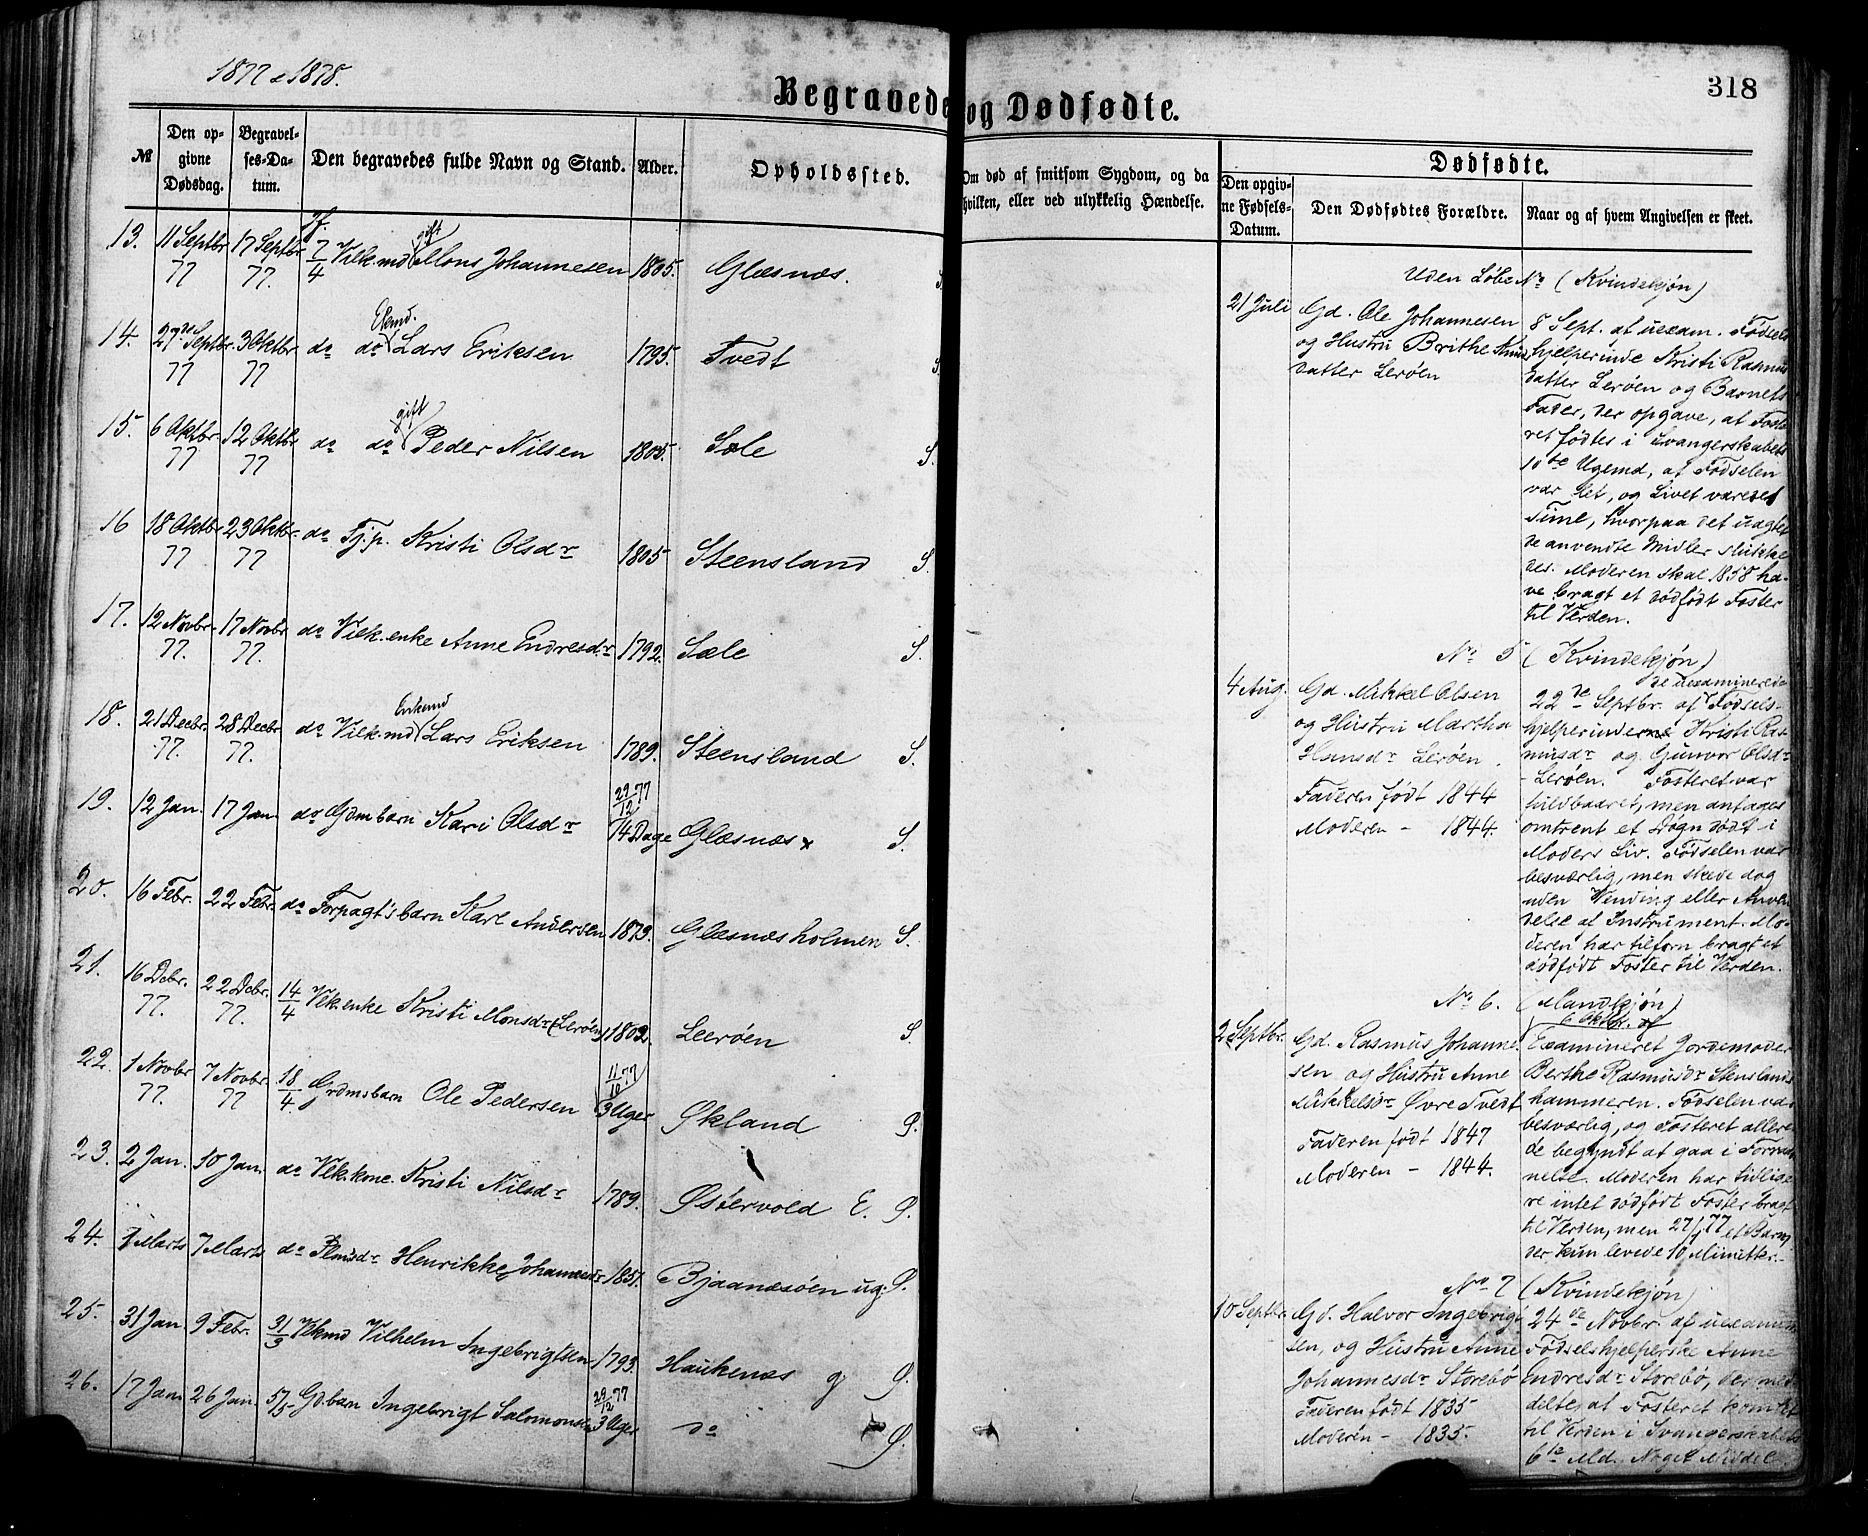 1877 & 1878.
Begravede og Dødfødte.
318
№
Den opgivne Dødsdag.
Begravelses-Datum.
Den begravedes fulde Navn og Stand.
Alder.
Opholdssted.
Om død af smitsom Sygdom, og da hvilken, eller ved ulykkelig Hændelse.
Dødfødte.
Den opgivne Fødsels-Datum.
Den Dødfødtes Forældre.
Naar og af hvem Angivelsen er skeet.
13. 11 Septbr 77 17 Septbr 77. 7/4 Vilk.md gift Mons Johannesen 1805. Glæsnæs. S.
14. 27de Septbr. 77 3 Oktbr 77 do do Lars Eriksen 1795. Tvedt S.
15. 6 Oktbr 77 12 Oktbr 77 do do gift Peder Nilsen 1805. Sæle S.
16 18 Oktbr 77 23 Oktbr. 77 do Tj.p. Kristi Olsdr 1805 Steensland S.
17. 12 Novbr. 77. 17 Novbr 77. do Vilk.enke Anne Endresdr 1792. Sæle S.
18. 21 Decbr. 77. 28 Decbr 77. do Vilk.md Enkemd Lars Eriksen 1789. Steensland S.
19. 12 Jan. 17 Jan. do Gdmbarn Kari Olsdr 29/12 77 14 Dage Glæsnæs x S.
20. 16 Febr. 22 Febr. do Forpagt's barn Karl Andersen 1873. Glæsnæsholmen S.
21. 16 Debr. 77. 22 Debr. 77. 14/4 Vilk.enke Kristi Monsdr (Lerøen) 1802. Leerøen S.
22. 1 Novbr 77. 7 Novbr. 77 18/4. Grdmsbarn Ole Pedersen 11/10 77 3 Uger Økland Ø.
23. 2 Jan. 10 Jan. do Vilk.kone. Kristi Nilsdr 1789. Østervold E. Ø.
24. 1 Marts 7 Marts do Henrikke Johannesdr 1857. Bjaanæsøen ug. Ø.
25. 31 Jan 9 Febr. 31/3 Vilkmd Vilhelm Ingebrigtsen 1793. Haukenæs g Ø.
26. 17 Jan 26 Jan. 5/5 Gd.barn Ingebrigt Salomonsen 29/12 77 3 Uger do Ø.
Uden Løbe No (Kvindekjøn)
21 Juli
Gd. Ole Johannesen
og Hustru Brithe Knuds
datter Lerøen
8 Sept. af uexam. Fødsels
hjelperinde Kristi Rasmus
datter Lerøen og Barnets
Fader, der opgave, at Foste
ret fødtes i Svangerskabets
10de Ugemd, at Fødselen
var let, og Livet varede 1
Time, hvorpaa det uagtet
de anvendte Midler slukke
des. Moderen skal 1858 ha-
ve bragt et dødfødt Foster
til Verden.
No 5 (Kvindekjøn)
4 Aug.
Gd. Mikkel Olsen
og Hustru Martha
Hansdr Lerøen.
Faderen født 1844
Moderen - 1844.
de uexaminerede
22de Septbr. af Fødsels-
hjelperinderne Kristi Ras-
musdr og Gunvor Olsdr
- Lerøen. Fosteret var
fuldbaaret, men antages
omtrent et Døgn dødt i
Moders Liv. Fødselen var
besværlig, men skede dog
uden Vending eller Anven
delse af Instrument. Mo-
deren har tilforn bragt et
dødfødt Foster til Verden.
No 6. (Mandkjøn)
2 Septbr.
Gd. Rasmus Johanne-
sen og Hustru Anne
Mikkelsdr Øvre Tvedt
Faderen født 1847
Moderen - 1844.
6 Oktbr. af
Examineret Jordemoder
Berthe Rasmusdr Stenslands
hammeren. Fødselen var
besværlig, og Fosteret allere
de begyndt at gaa i Forraad
nelse. Moderen har tidlige
re intet dødfødt Foster bragt
til Verden, men 27/1 77 et Barn,
der kun levede 10 Minutter.
No 7 (Kvindekjøn)
10 Septbr.
Gd. Halvor Ingebrigt
sen, og Hustru Anne
Johannesdr Storebø
Faderen født 1835
Moderen - 1835.
24de Novbr. af uexamin
Fødselshjelperske Anne
Endresdr Storebø, der med
delte, at Fosteret kom
til Verden i Svangerskabets
6te Md. Noget Middel